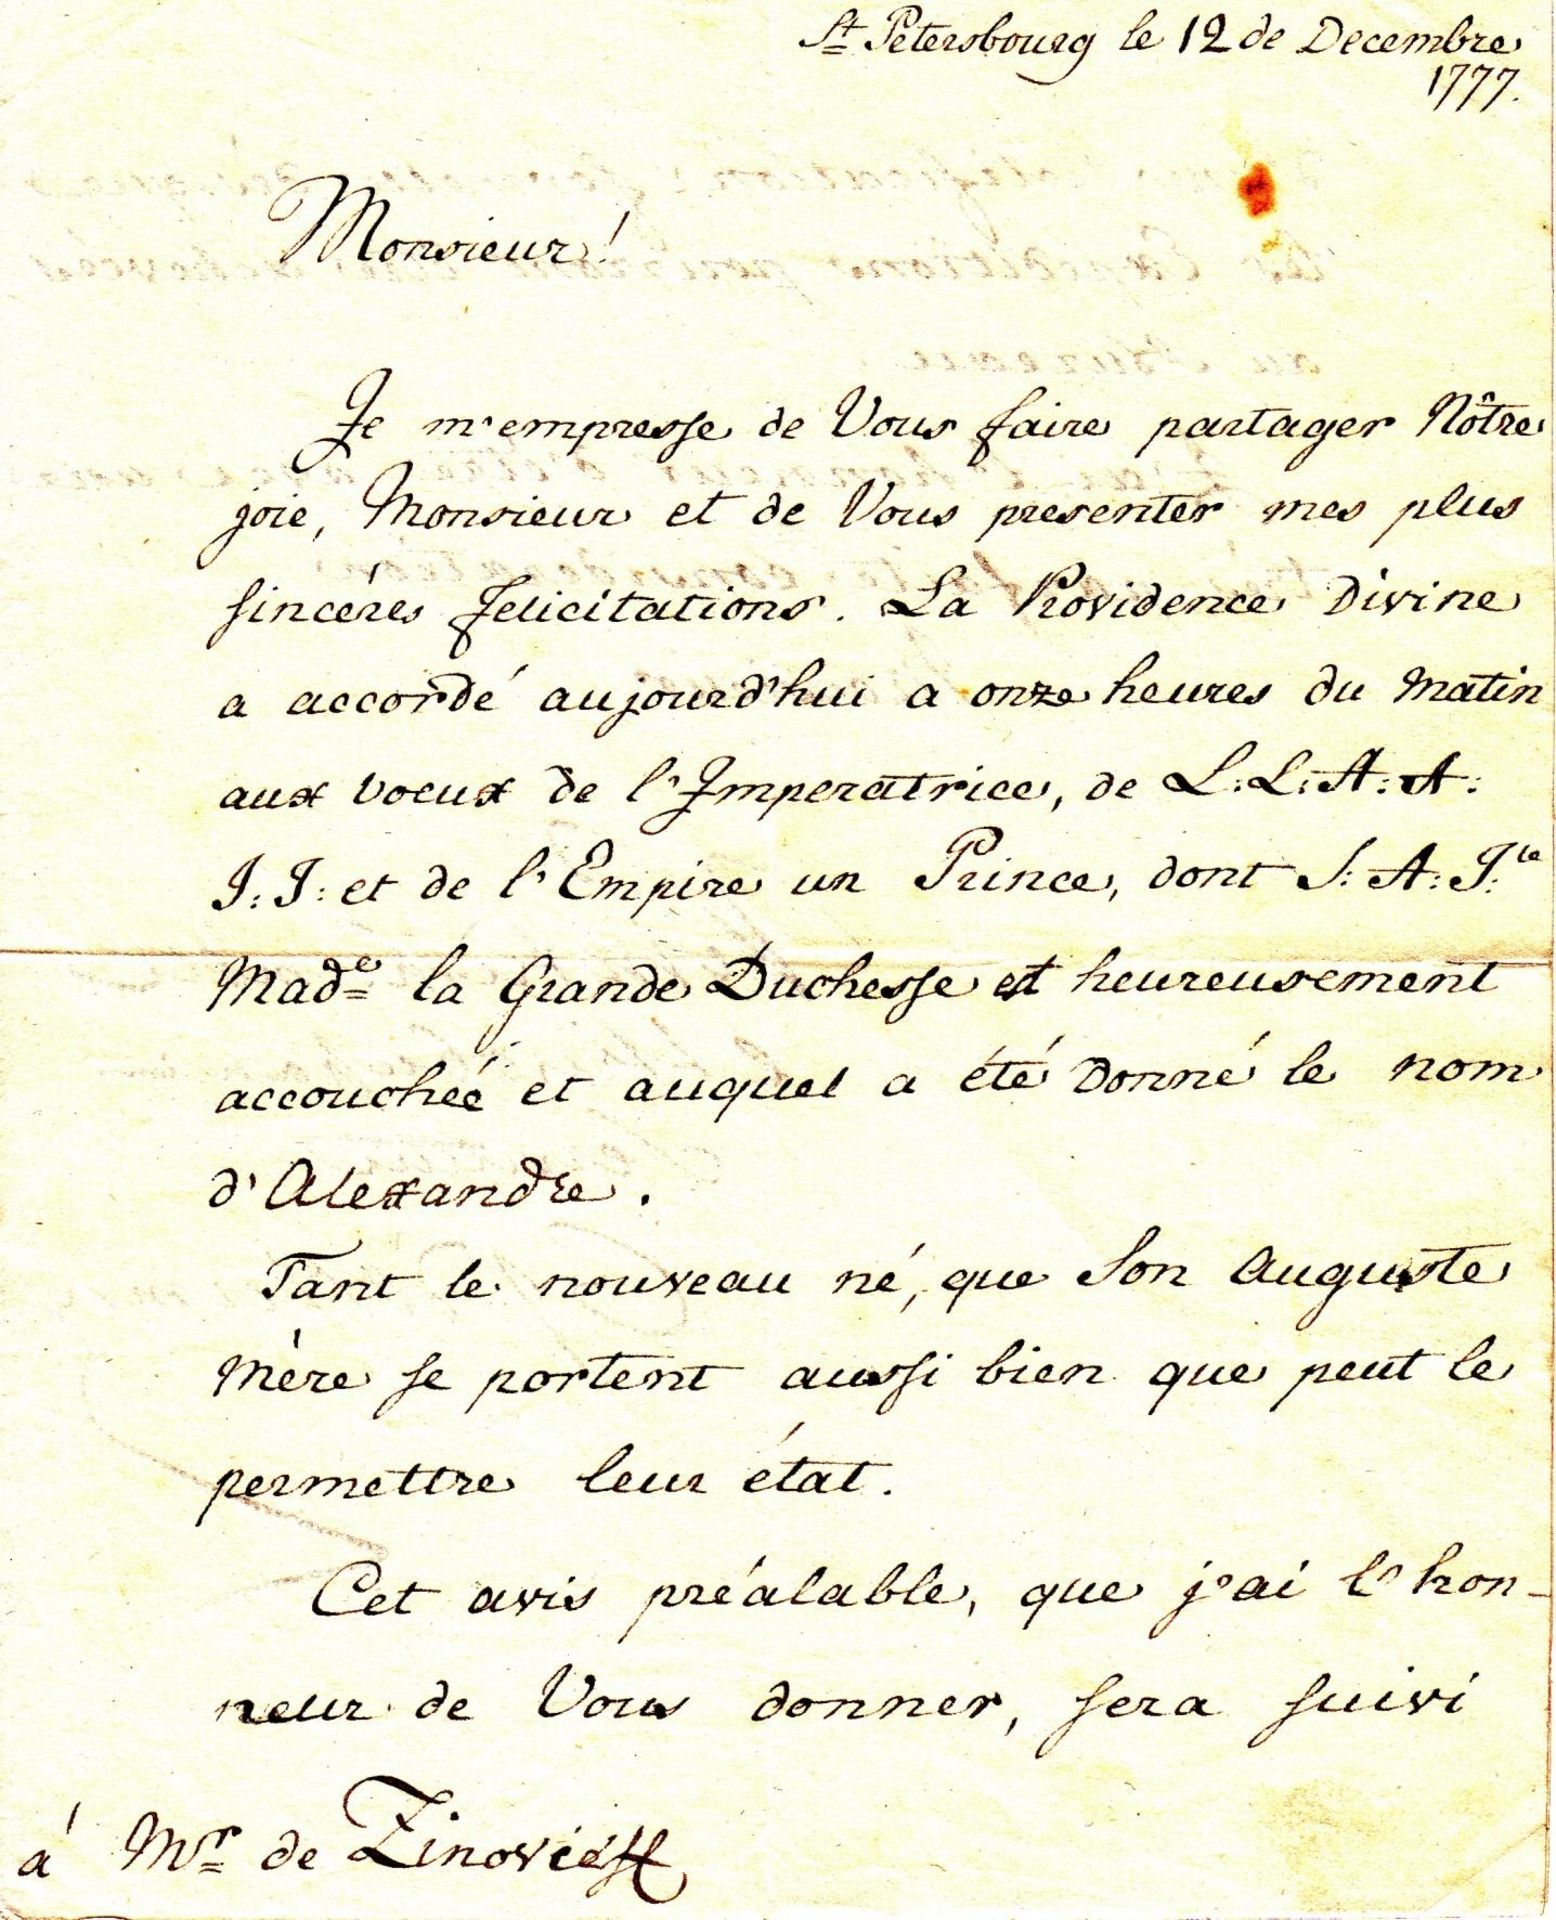 St Petersbourg le 12 de Decembre
1777.
Monsieur!
Je m'empresse de Vous faire partager Nôtre
joie, Monsieur et de Vous presenter mes plus
sincéres felicitations. La Providence Divine
a accordé aujourd'hui a onze heures du Matin
aux voeux de l'Imperatrice, de L: L: A: A:
I: I: et de l'Empire un Prince, dont S: A: I:le
Made la Grande Duchesse est heureusement
accouchéé et auquel a été donné le nom
d'Alexandre.
Tant le nouveau né, que Son Auguste
Mère se portent aussi bien que peut le
permettre leur état.
Cet avis préalable, que j'ai l'hon-
neur de Vous donner, sera suivi
á Mr de Zinovieff